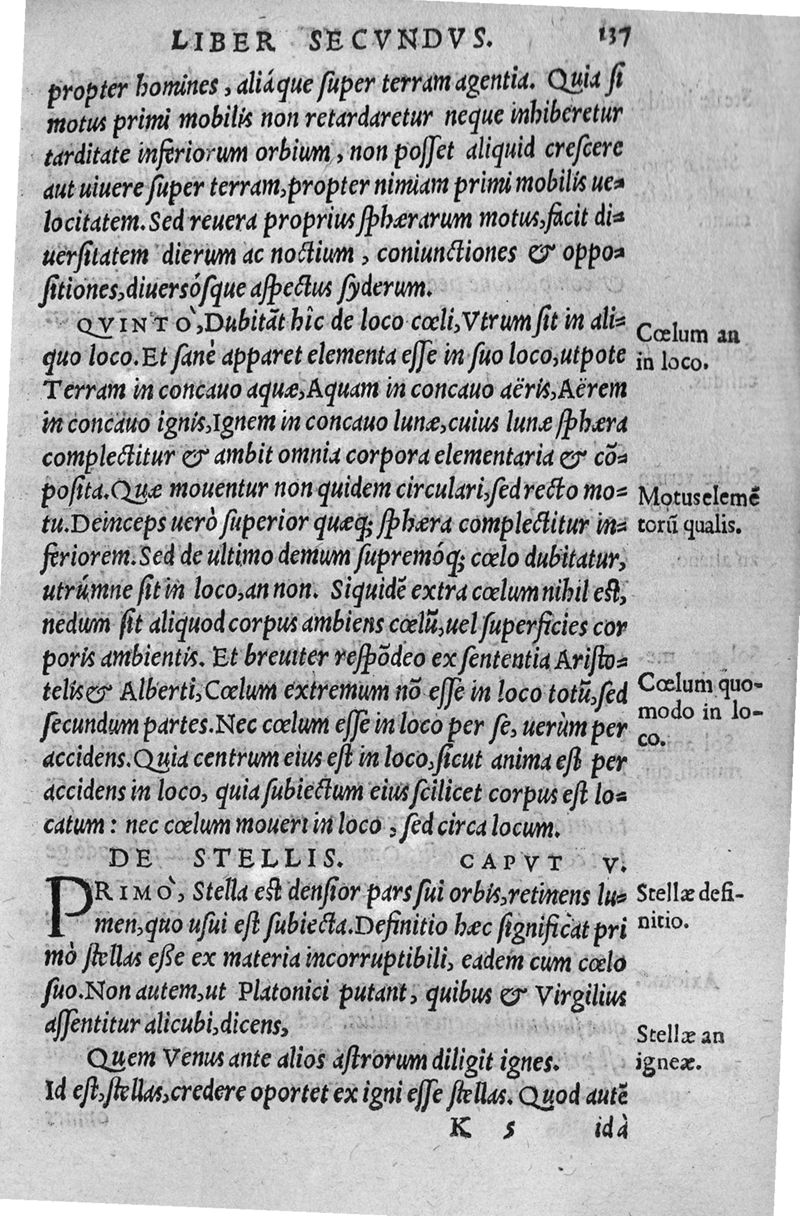 LIBER SECVNDVS. 137
propter homines, aliáque ſuper terram agentia. Quia ſi
motus primi mobilis non retardaretur neque inhiberetur
tarditate inferiorum orbium, non poſſet aliquid creſcere
aut uiuere ſuper terram, propter nimiam primi mobilis ue=
locitatem. Sed reuera proprius ſphærarum motus, facit di=
uerſitatem dierum ac noctium, coniunctiones & oppo=
ſitiones, diuersósque aſpectus ſyderum.
QVINTO`, Dubitāt hîc de loco cœli, Vtrum ſit in ali=
quo loco. Et ſanè apparet elementa eſſe in ſuo loco, utpote
Terram in concauo aquæ, Aquam in concauo aëris, Aërem
in concauo ignis, Ignem in concauo lunæ, cuius lunæ ſphæra
complectitur & ambit omnia corpora elementaria & cō=
poſita. Quæ mouentur non quidem circulari, ſed recto mo=
tu. Deinceps uerò ſuperior quæq; ſphæra complectitur in=
feriorem. Sed de ultimo demum ſupremóq; cœlo dubitatur,
utrúmne ſit in loco, an non. Siquidē extra cœlum nihil eſt,
nedum ſit aliquod corpus ambiens cœlū, uel ſuperficies cor
poris ambientis. Et breuiter reſpōdeo ex ſententia Ariſto=
telis & Alberti, Cœlum extremum nō eſſe in loco totū, ſed
ſecundum partes. Nec cœlum eſſe in loco per ſe, uerùm per
accidens. Quia centrum eius eſt in loco, ſicut anima eſt per
accidens in loco, quia ſubiectum eius ſcilicet corpus eſt lo=
catum: nec cœlum moueri in loco, ſed circa locum.
DE STELLIS. CAPVT V.
PRIMO`, Stella eſt denſior pars ſui orbis, retinens lu=
men, quo uſui eſt ſubiecta. Definitio hæc ſignificat pri
mò ſtellas eſſe ex materia incorruptibili, eadem cum cœlo
ſuo. Non autem, ut Platonici putant, quibus & Virgilius
aſſentitur alicubi, dicens,
Quem Venus ante alios aſtrorum diligit ignes.
Id eſt, ſtellas, credere oportet ex igni eſſe ſtellas. Quod autē
K 5 idà
Cœlum an
in loco.
Motus elemē
torū qualis.
Cœlum quo-
modo in lo-
co.
Stellæ defi-
nitio.
Stellæ an
igneæ.